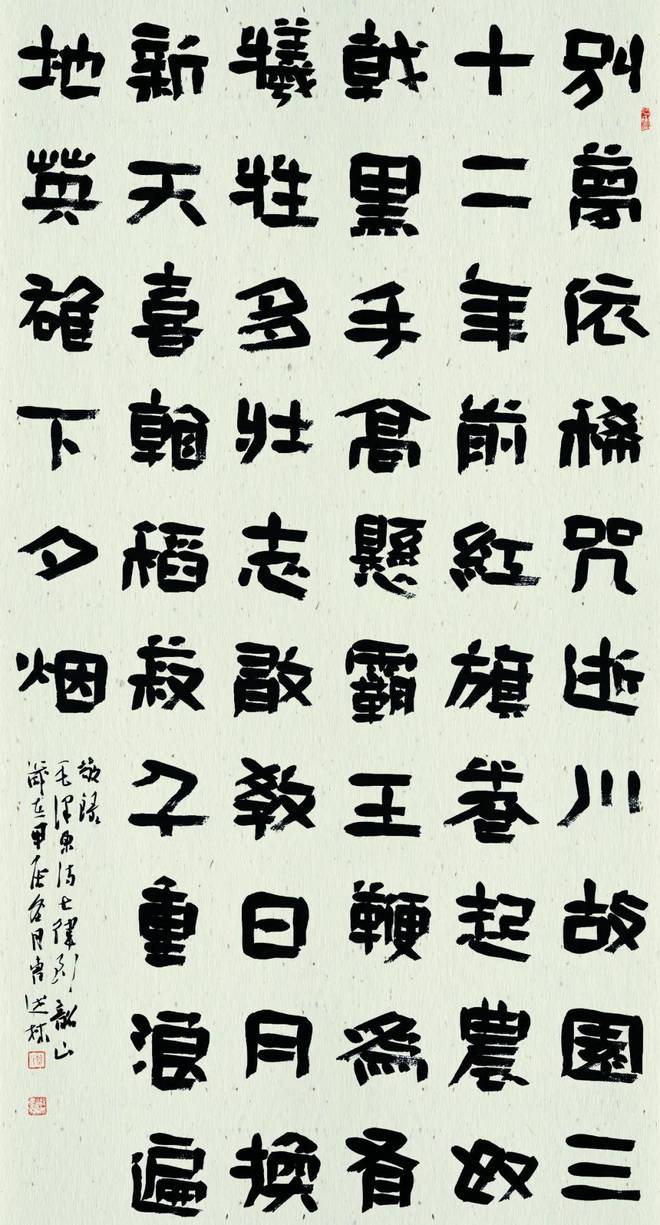 别夢依稀咒逝川故園三
十二年前紅旗卷起農奴
戟黑手高懸霸王鞭為有
犧牲多壯志敢教日月換
新天喜看稻菽千重浪遍
地英雄下夕烟
敬錄
毛澤東詩七律到韶山
歲在甲辰月曹林